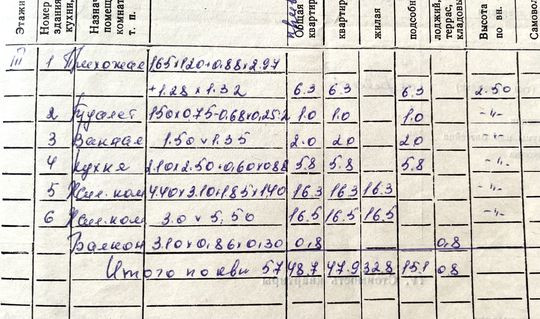 Этажи
Номер здания кухни,
Назнач помещ комнат т. п.
Общая квартир
квартир
жилая
подсобн
лоджий, террас, кладовы
Высота по вн.
Самовол
III 1 Прихожая 165×120+0.88×2.97
+1.28×1.32 6.3 6.3 6.3 2.50
2 Туалет 150×0.75-0.68×0.25.2 1.0 1.0 1.0 -"-
3 Ванная 1.50×1.35 2.0 2.0 2.0 -"-
4 Кухня 2.10×2.50+0.60×0.88 5.8 5.8 5.8 -"-
5 Жил. ком 4.40×3.10+1.85×1.40 16.3 16.3 16.3 -"-
6 Жил. ком 3.0×5.50 16.5 16.5 16.5 -"-
Балкон 3.10×0.86×0.30 0.8 0.8
Итого по кв. 57 48.7 47.9 32.8 15.1 0.8
IV. Стоимость квартиры